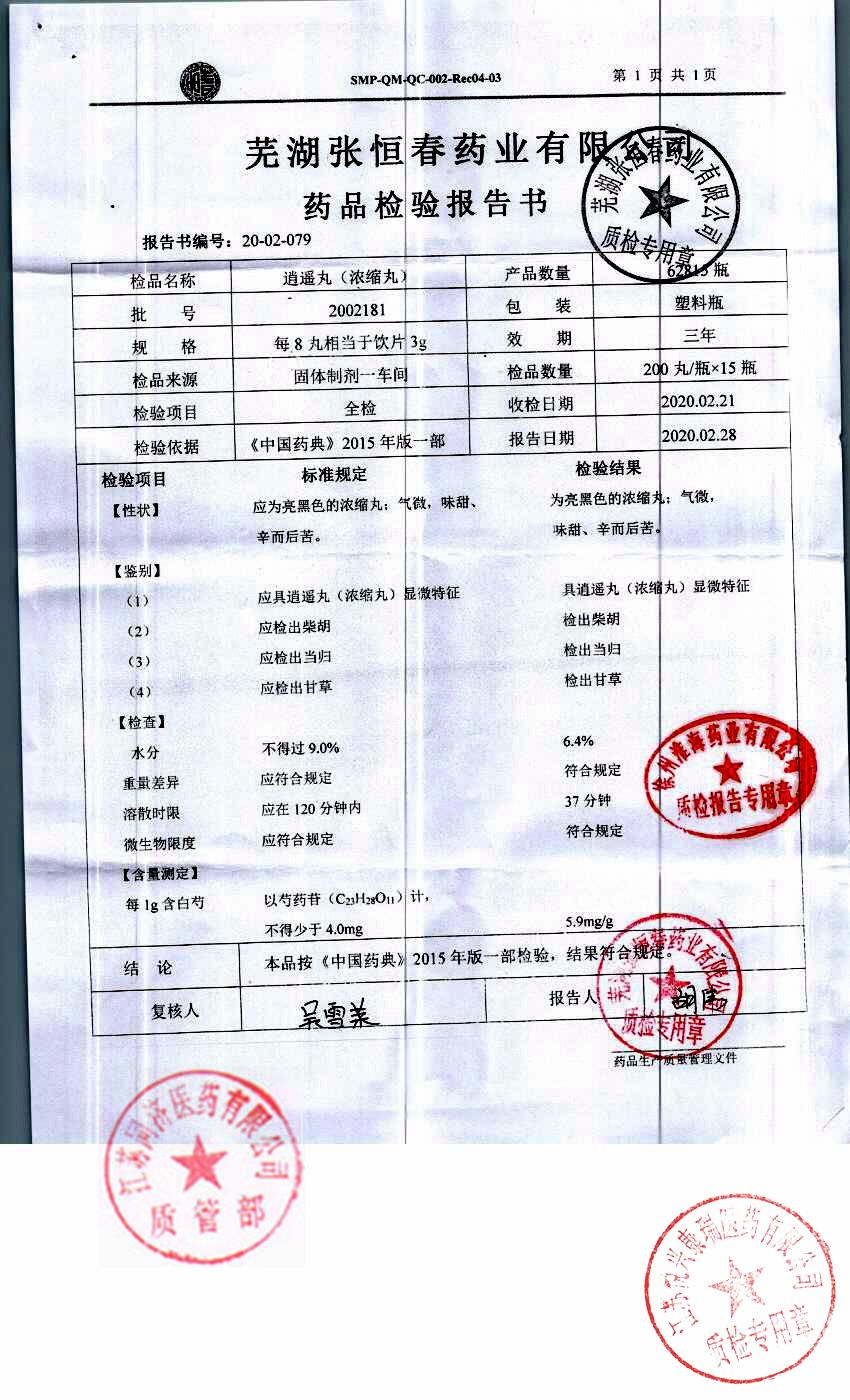 SMP-QM-QC-002-Rec04-03 第 1 页 共 1 页
芜湖张恒春药业有限公司
药品检验报告书
芜湖张恒春药业有限公司
质检专用章
报告书编号：20-02-079
检品名称 逍遥丸（浓缩丸） 产品数量 62815 瓶
批 号 2002181 包 装 塑料瓶
规 格 每 8 丸相当于饮片 3g 效 期 三年
检品来源 固体制剂一车间 检品数量 200 丸/瓶×15 瓶
检验项目 全检 收检日期 2020.02.21
检验依据 《中国药典》2015 年版一部 报告日期 2020.02.28
检验项目 标准规定 检验结果
【性状】 应为亮黑色的浓缩丸；气微，味甜、 为亮黑色的浓缩丸；气微，
辛而后苦。 味甜、辛而后苦。
【鉴别】
（1） 应具逍遥丸（浓缩丸）显微特征 具逍遥丸（浓缩丸）显微特征
（2） 应检出柴胡 检出柴胡
（3） 应检出当归 检出当归
（4） 应检出甘草 检出甘草
【检查】
水分 不得过 9.0% 6.4%
重量差异 应符合规定 符合规定
溶散时限 应在 120 分钟内 37 分钟
微生物限度 应符合规定 符合规定
徐州淮海药业有限公司
质检报告专用章
【含量测定】
每 1g 含白芍 以芍药苷（C23H28O11）计，
不得少于 4.0mg 5.9mg/g
结 论 本品按《中国药典》2015 年版一部检验，结果符合规定。
复核人 吴雪美 报告人
芜湖张恒春药业有限公司
质检专用章
药品生产质量管理文件
江苏同济医药有限公司
质管部
质检专用章